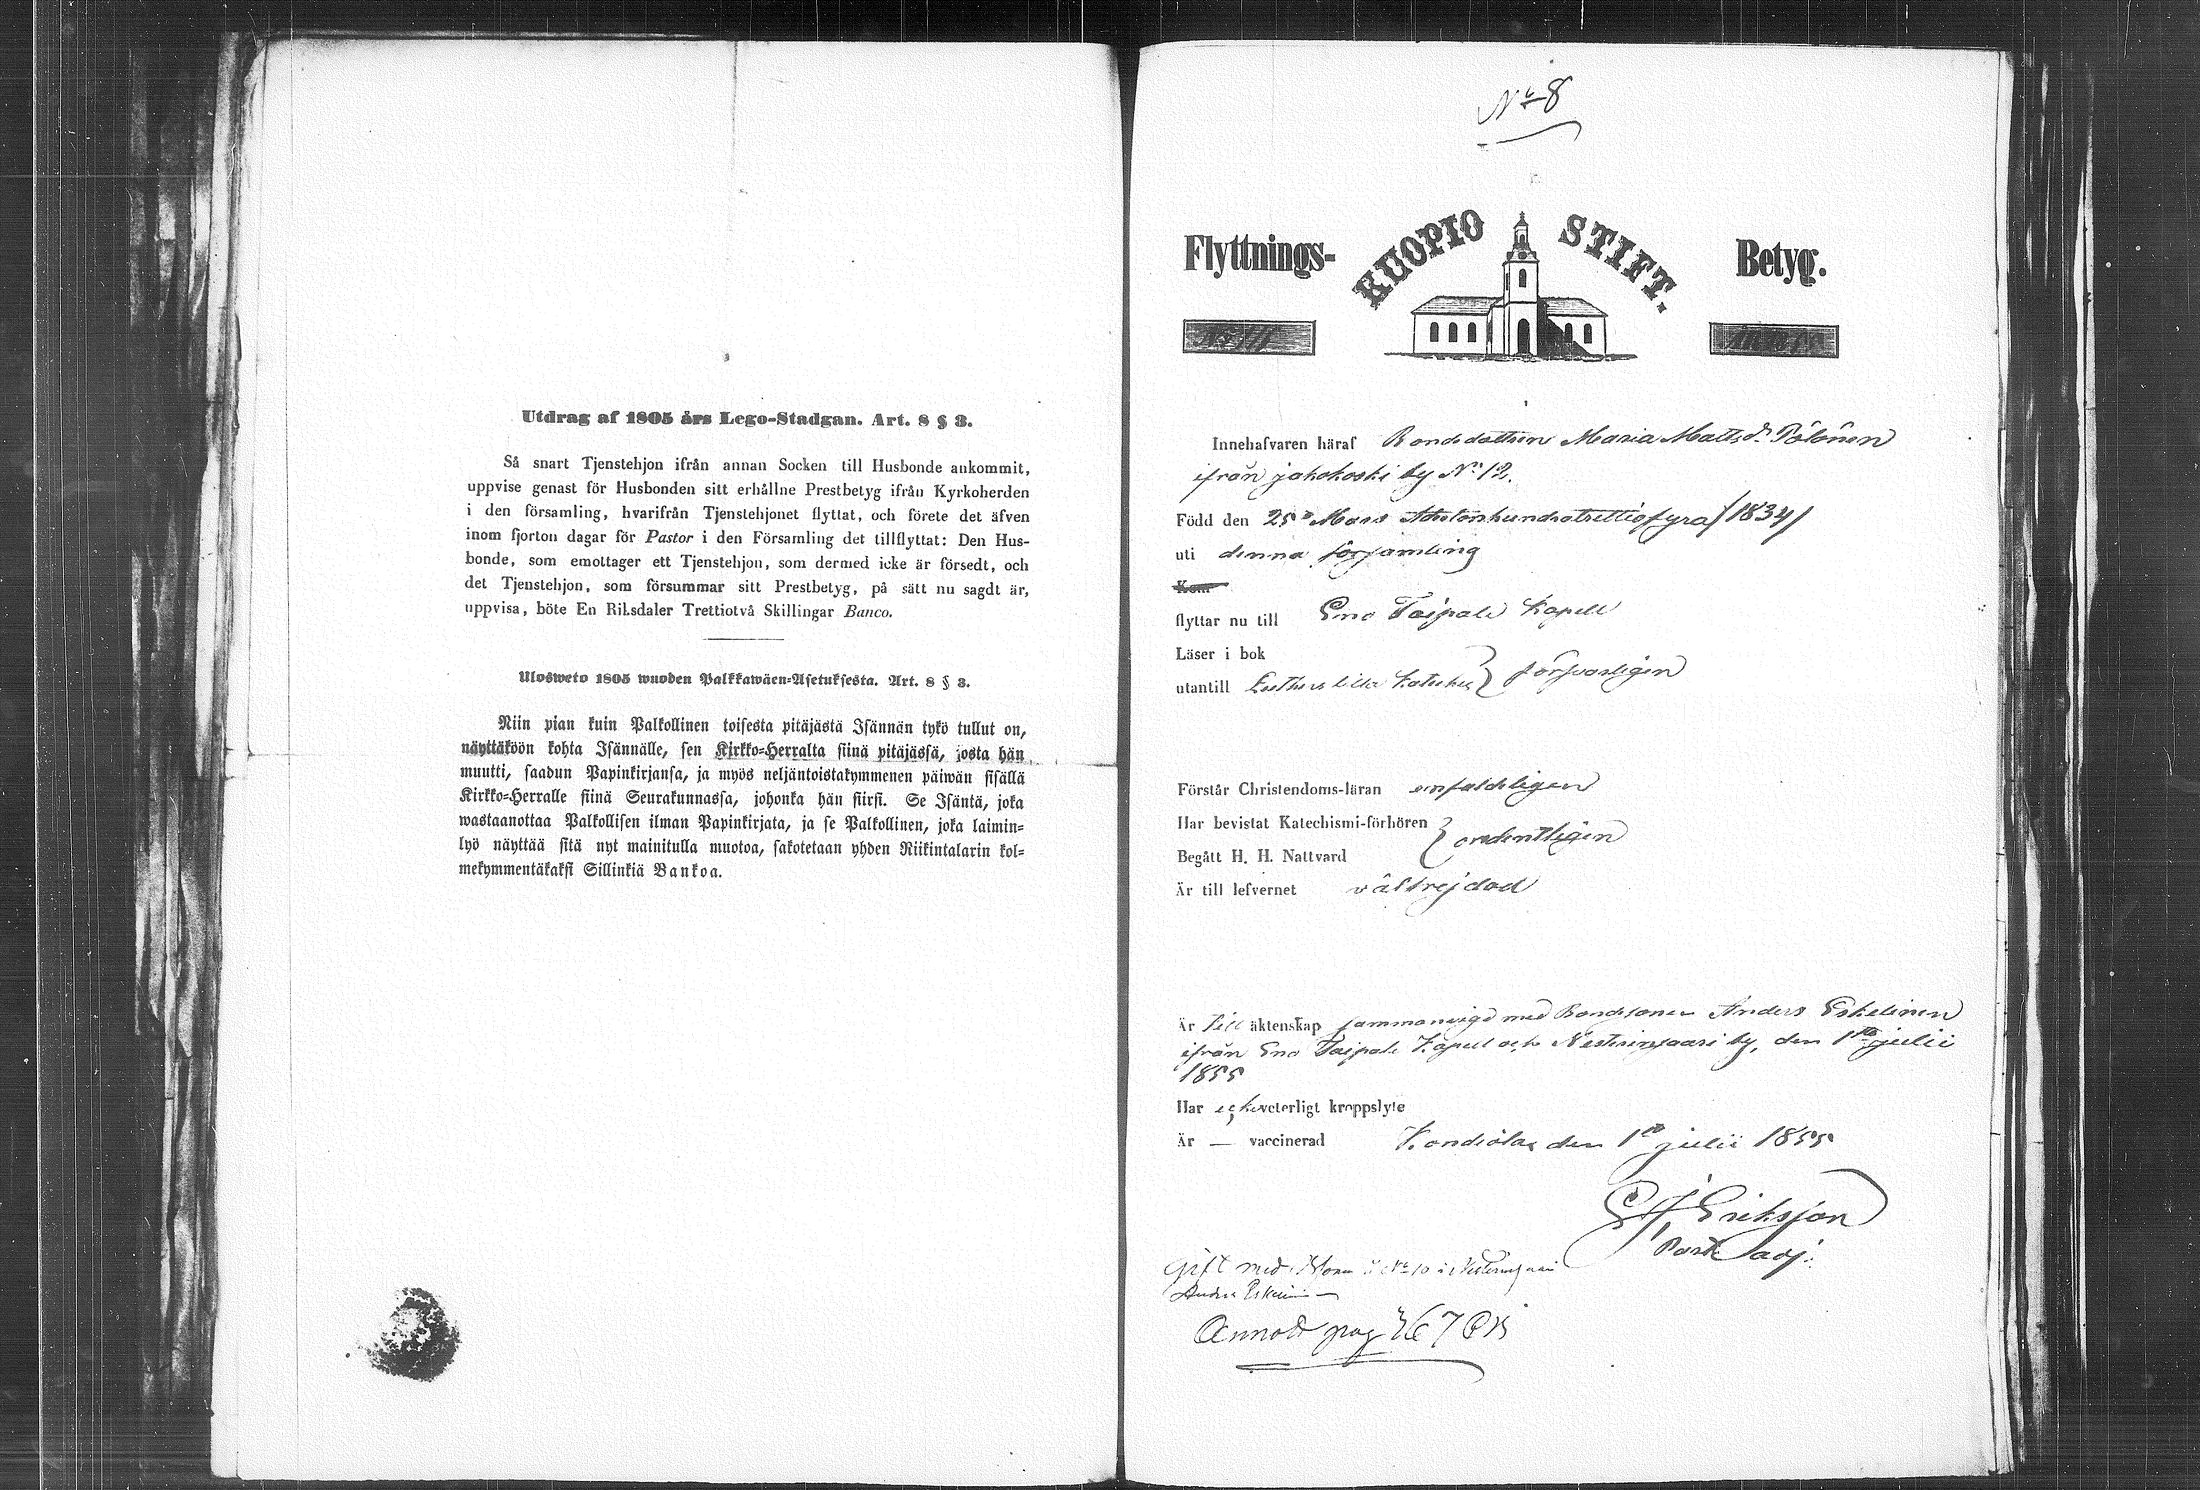 Utdrag af 1805 års Lego-Stadgan. Art. 8 § 3.
Så snart Tjenstehjon ifrån annan Socken till Husbonde ankommit,
uppvise genast för Husbonden sitt erhållne Prestbetyg ifrån Kyrkoherden
i den församling, hvarifrån Tjenstehjonet flyttat, och förete det äfven
inom fjorton dagar för Pastor i den Församling det tillflyttat: Den Hus-
bonde, som emottager ett Tjenstehjon, som dermed icke är försedt, och
det Tjenstehjon, som försummar sitt Prestbetyg, på sätt nu sagdt är,
uppvisa, böte En Riksdaler Trettiotvå Skillingar Banco.
Ulosweto 1805 wuoden Palkkawäen-Asetuksesta. Art. 8 § 3.
Niin pian kuin Palkollinen toisesta pitäjästä Isännän tykö tullut on,
näyttäköön kohta Isännälle, sen Kirkko-Herralta siinä pitäjässä, josta hän
muutti, saadun Papinkirjansa, ja myös neljäntoistakymmenen päiwän sisällä
Kirkko-Herralle siinä Seurakunnassa, johonka hän siirsi. Se Isäntä, joka
wastaanottaa Palkollisen ilman Papinkirjata, ja se Palkollinen, joka laimin-
lyö näyttää sitä nyt mainitulla muotoa, sakotetaan yhden Riikintalarin kol-
mekymmentäkaksi Sillinkiä Bankoa.
No 8
Flyttnings- KUOPIO STIFT. Betyg.
Innehafvaren häraf Bondedottren Maria Mattsdr Pölönen
ifrån jakokoski by No 12.
Född den 25e Mars Adertonhundratrettiofyra /1834/
uti denna församling
flyttar nu till Eno Taipale Kapell
Läser i bok
utantill Luthers lilla Kateches } försvarligen
Förstår Christendoms-läran enfaldeligen
Har bevistat Katechismi-förhören
Begått H. H. Nattvard } ordentligen
Är till lefvernet välfrejdad
Är till äktenskap sammanvigd med Bondesonen Anders Eskelinen
ifrån Eno Taipale Kapell och Nesterinsaari by, den 1sta julii
1855
Har ej veterligt kroppslyte
Är — vaccinerad Kondiolax den 1ta julii 1855
Eriksson
Past. adj.
Gift med No 10 i Nesterinsaari
Anders Eskelinen
Annot pag 367